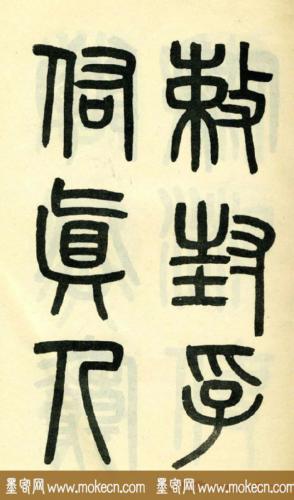 敕封孚
佑眞人
墨客网 www.mokecn.com 墨客网 www.mokecn.com